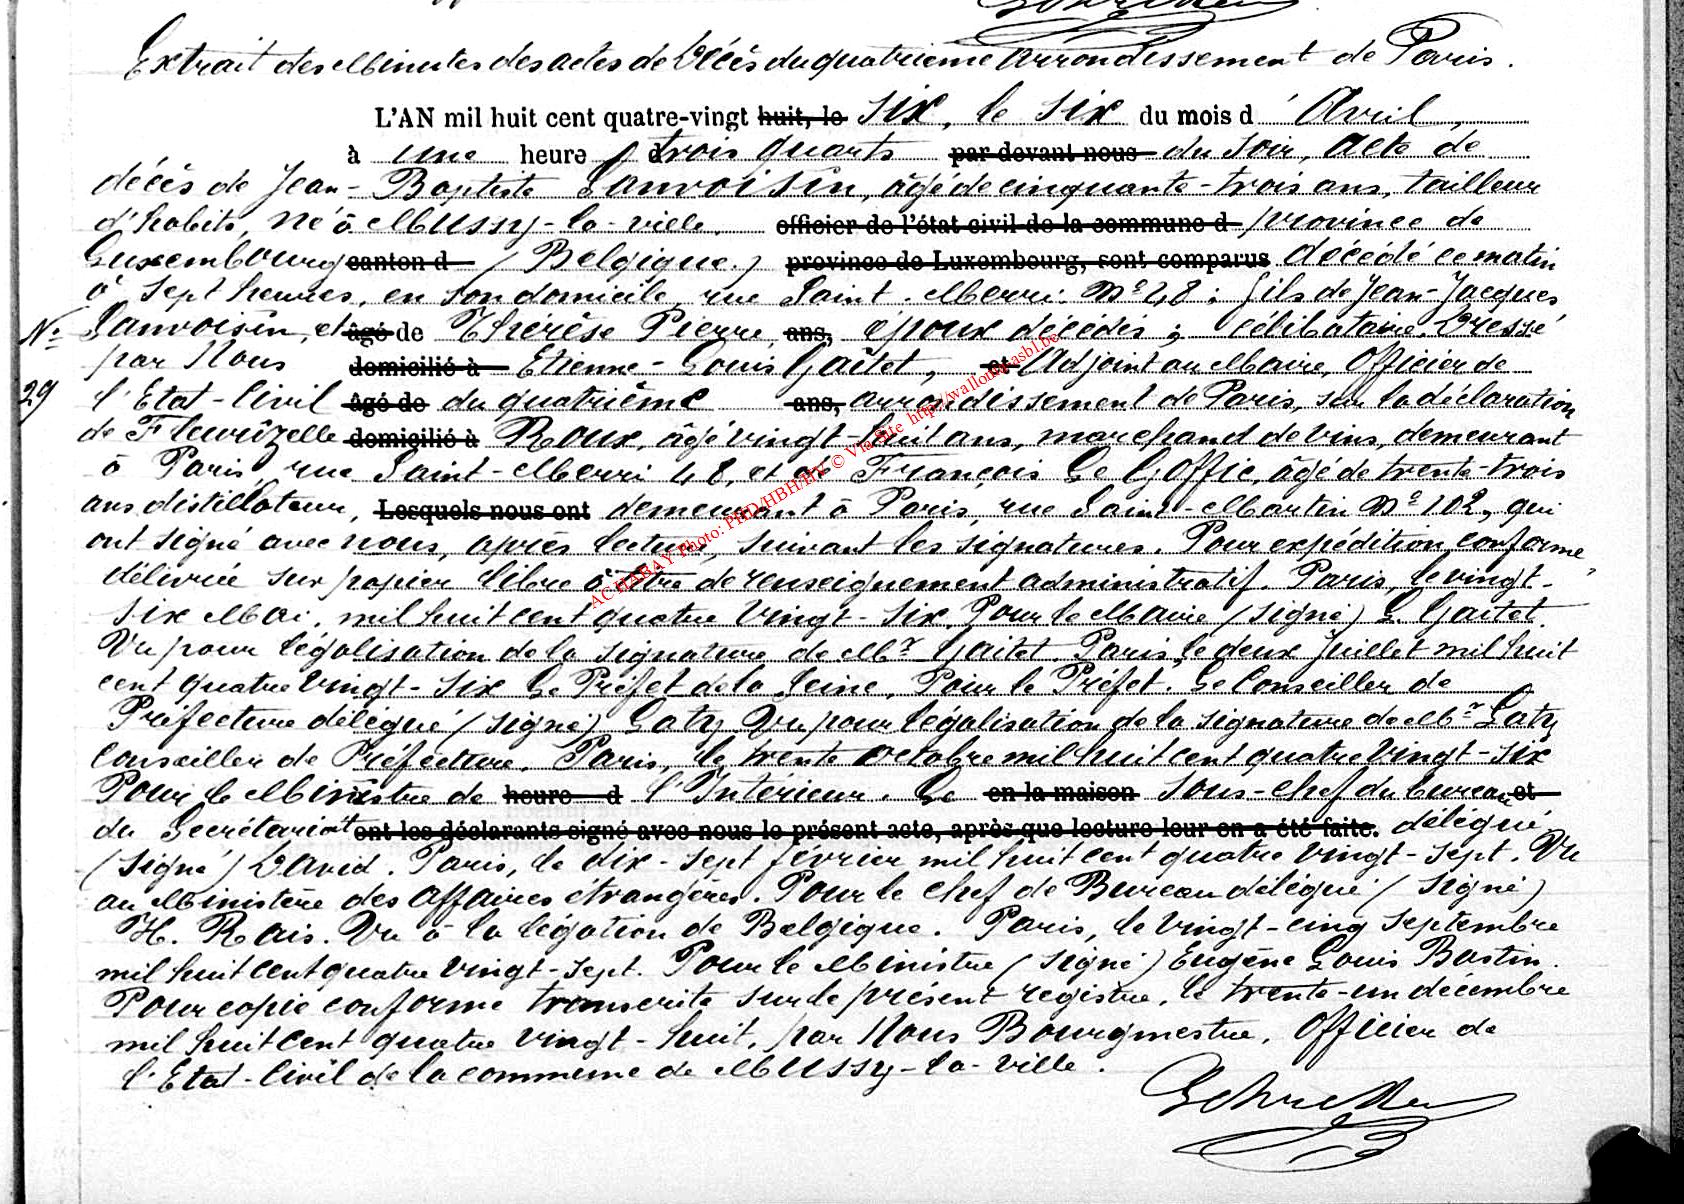 Extrait des Minutes des actes de Décès du quatrième arrondissement de Paris.
L'AN mil huit cent quatre-vingt huit, le six, le six du mois d'Avril,
à une heure trois quarts par devant nous du soir, Acte de
décés de Jean-Baptiste Lanvoisin, âgé de cinquante-trois ans, tailleur
d'habits, né à Mussy-la-ville. officier de l'état civil de la commune d province de
Luxembourg canton d (Belgique.) province de Luxembourg, sont comparus décédé ce matin
à sept heures, en son domicile, rue Saint-Merri. N° 48; fils de Jean-Jacques
N° Lanvoisin, et âgé de Thérèse Pierre, ans, époux décédés; célibataire. Dressé
par Nous domicilié à Etienne-Louis Gaitet, et Adjoint au Maire, Officier de
29 l'Etat-Civil âgé de du quatrième ans, arrondissement de Paris, sur la déclaration
de Fleurizelle domicilié à Roux, âgé vingt huit ans, marchand de vins, demeurant
à Paris, rue Saint-Merri 48, et de François Le Goffic, âgé de trente-trois
ans, distillateur, Lesquels nous ont demeurant à Paris, rue Saint-Martin N° 102, qui
ont signé avec nous, après lecture, suivant les signatures. Pour expédition conforme,
délivrée sur papier libre à titre de renseignement administratif. Paris, le vingt-
six Mai, mil huit cent quatre vingt-six. Pour le Maire (signé) L. Gaitet.
Vu pour légalisation de la signature de Mr Gaitet. Paris, le deux Juillet mil huit
cent quatre vingt-six Le Préfet de la Seine, Pour le Préfet. Le Conseiller de
Préfecture délégué (signé) Laty. Vu pour légalisation de la signature de Mr Laty
Conseiller de Préfecture. Paris, le trente octobre mil huit cent quatre vingt-six
Pour le Ministre de heure d l'Intérieur. Le en la maison Sous-chef du bureau et
du Secrétariat ont les déclarants signé avec nous le présent acte, après que lecture leur en a été faite. délégué
(Signé) David. Paris, le dix-sept février mil huit cent quatre vingt-sept. Vu
au Ministère des Affaires étrangères. Pour le chef de Bureau délégué (signé)
H. Rais. Vu à la légation de Belgique. Paris, le vingt-cinq septembre
mil huit cent quatre vingt-sept. Pour le Ministre (signé) Eugène Louis Bastin.
Pour copie conforme transcrite sur le présent registre, le trente-un décembre
mil huit cent quatre vingt-huit, par Nous Bourgmestre, Officier de
l'Etat-Civil de la commune de Mussy-la-ville.
ACHABAY Photo: PHD/HBH/HV © Via Site http://wallonia-asbl.be